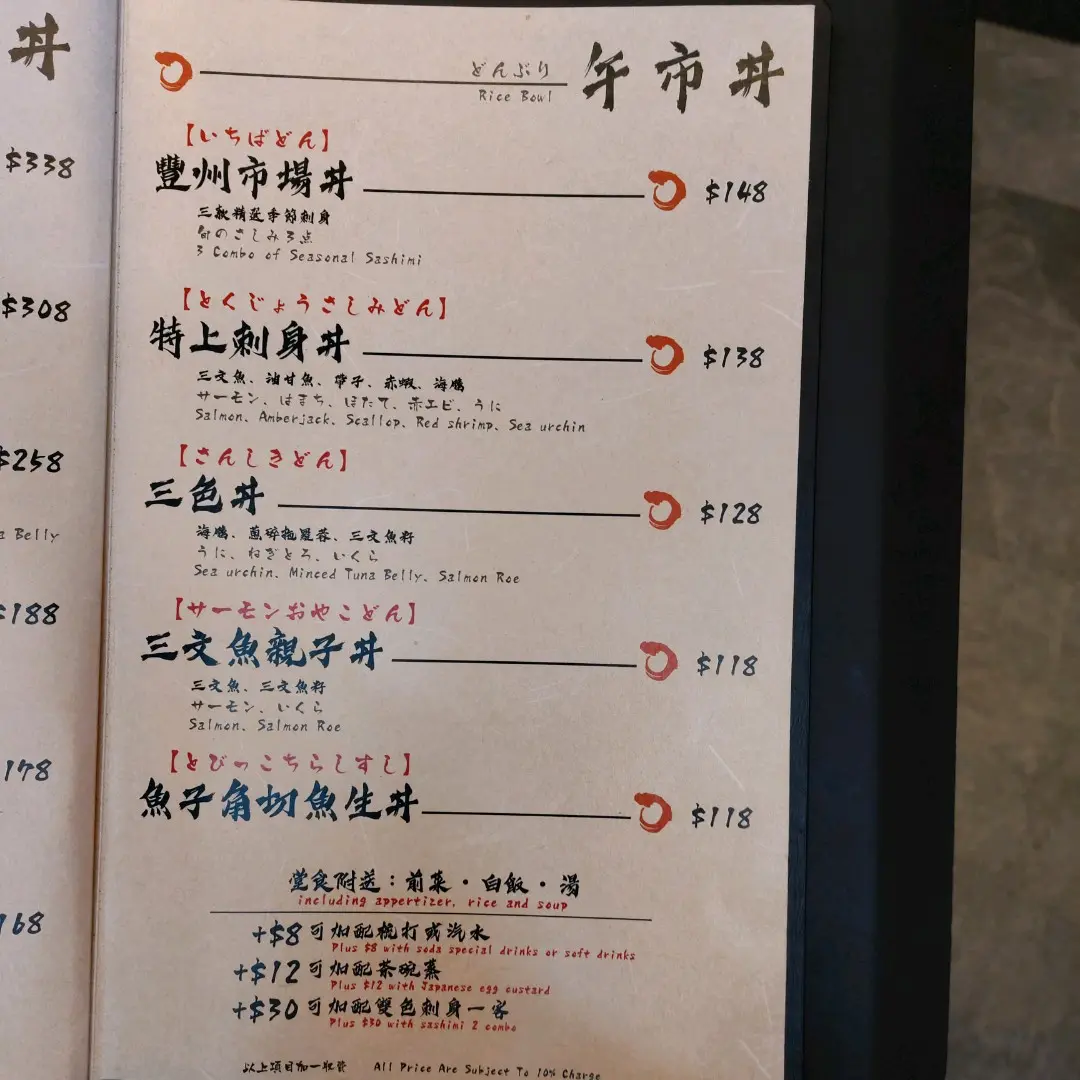 丼
$338
$308
$258
a Belly
$188
178
168
どんぶり
Rice Bowl
午市丼
【いちばどん】
豐州市場丼 $148
三款精選季節刺身
旬のさしみ3点
3 Combo of Seasonal Sashimi
【とくじょうさしみどん】
特上刺身丼 $138
三文魚、油甘魚、帶子、赤蝦、海膽
サーモン、はまち、ほたて、赤エビ、うに
Salmon、Amberjack、Scallop、Red shrimp、Sea urchin
【さんしきどん】
三色丼 $128
海膽、蔥碎拖羅蓉、三文魚籽
うに、ねぎとろ、いくら
Sea urchin、Minced Tuna Belly、Salmon Roe
【サーモンおやこどん】
三文魚親子丼 $118
三文魚、三文魚籽
サーモン、いくら
Salmon、Salmon Roe
【とびっこちらしすし】
魚子角切魚生丼 $118
堂食附送：前菜・白飯・湯
including appertizer, rice and soup
+$8 可加配梳打或汽水
Plus $8 with soda special drinks or soft drinks
+$12 可加配茶碗蒸
Plus $12 with Japanese egg custard
+$30 可加配雙色刺身一客
Plus $30 with sashimi 2 combo
以上項目加一收費 All Price Are Subject To 10% Charge